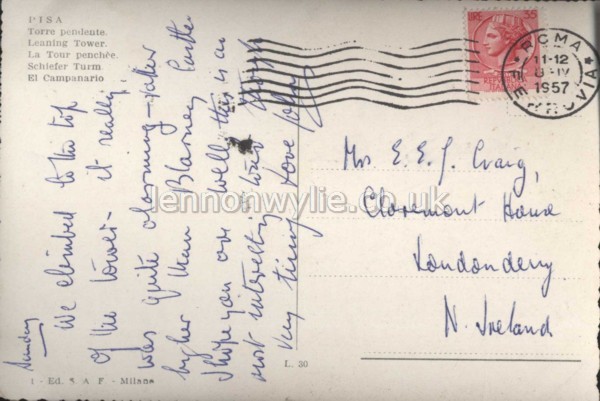 PISA
Torre pendente.
Leaning Tower.
La Tour penchée.
Schiefer Turm.
El Campanario
Sunday
We climbed to the top
of the tower – it really
was quite alarming – rather
higher than Blarney Castle
I hope you are well, this is a
most interesting visit though
very tiring. Love
ROMA
11-12
1957
FERROVIA
Mrs E. E. J. Craig,
Claremont House
Londonderry
N. Ireland
lennonwylie.co.uk
L. 30
1 - Ed. S. A. F. - Milano